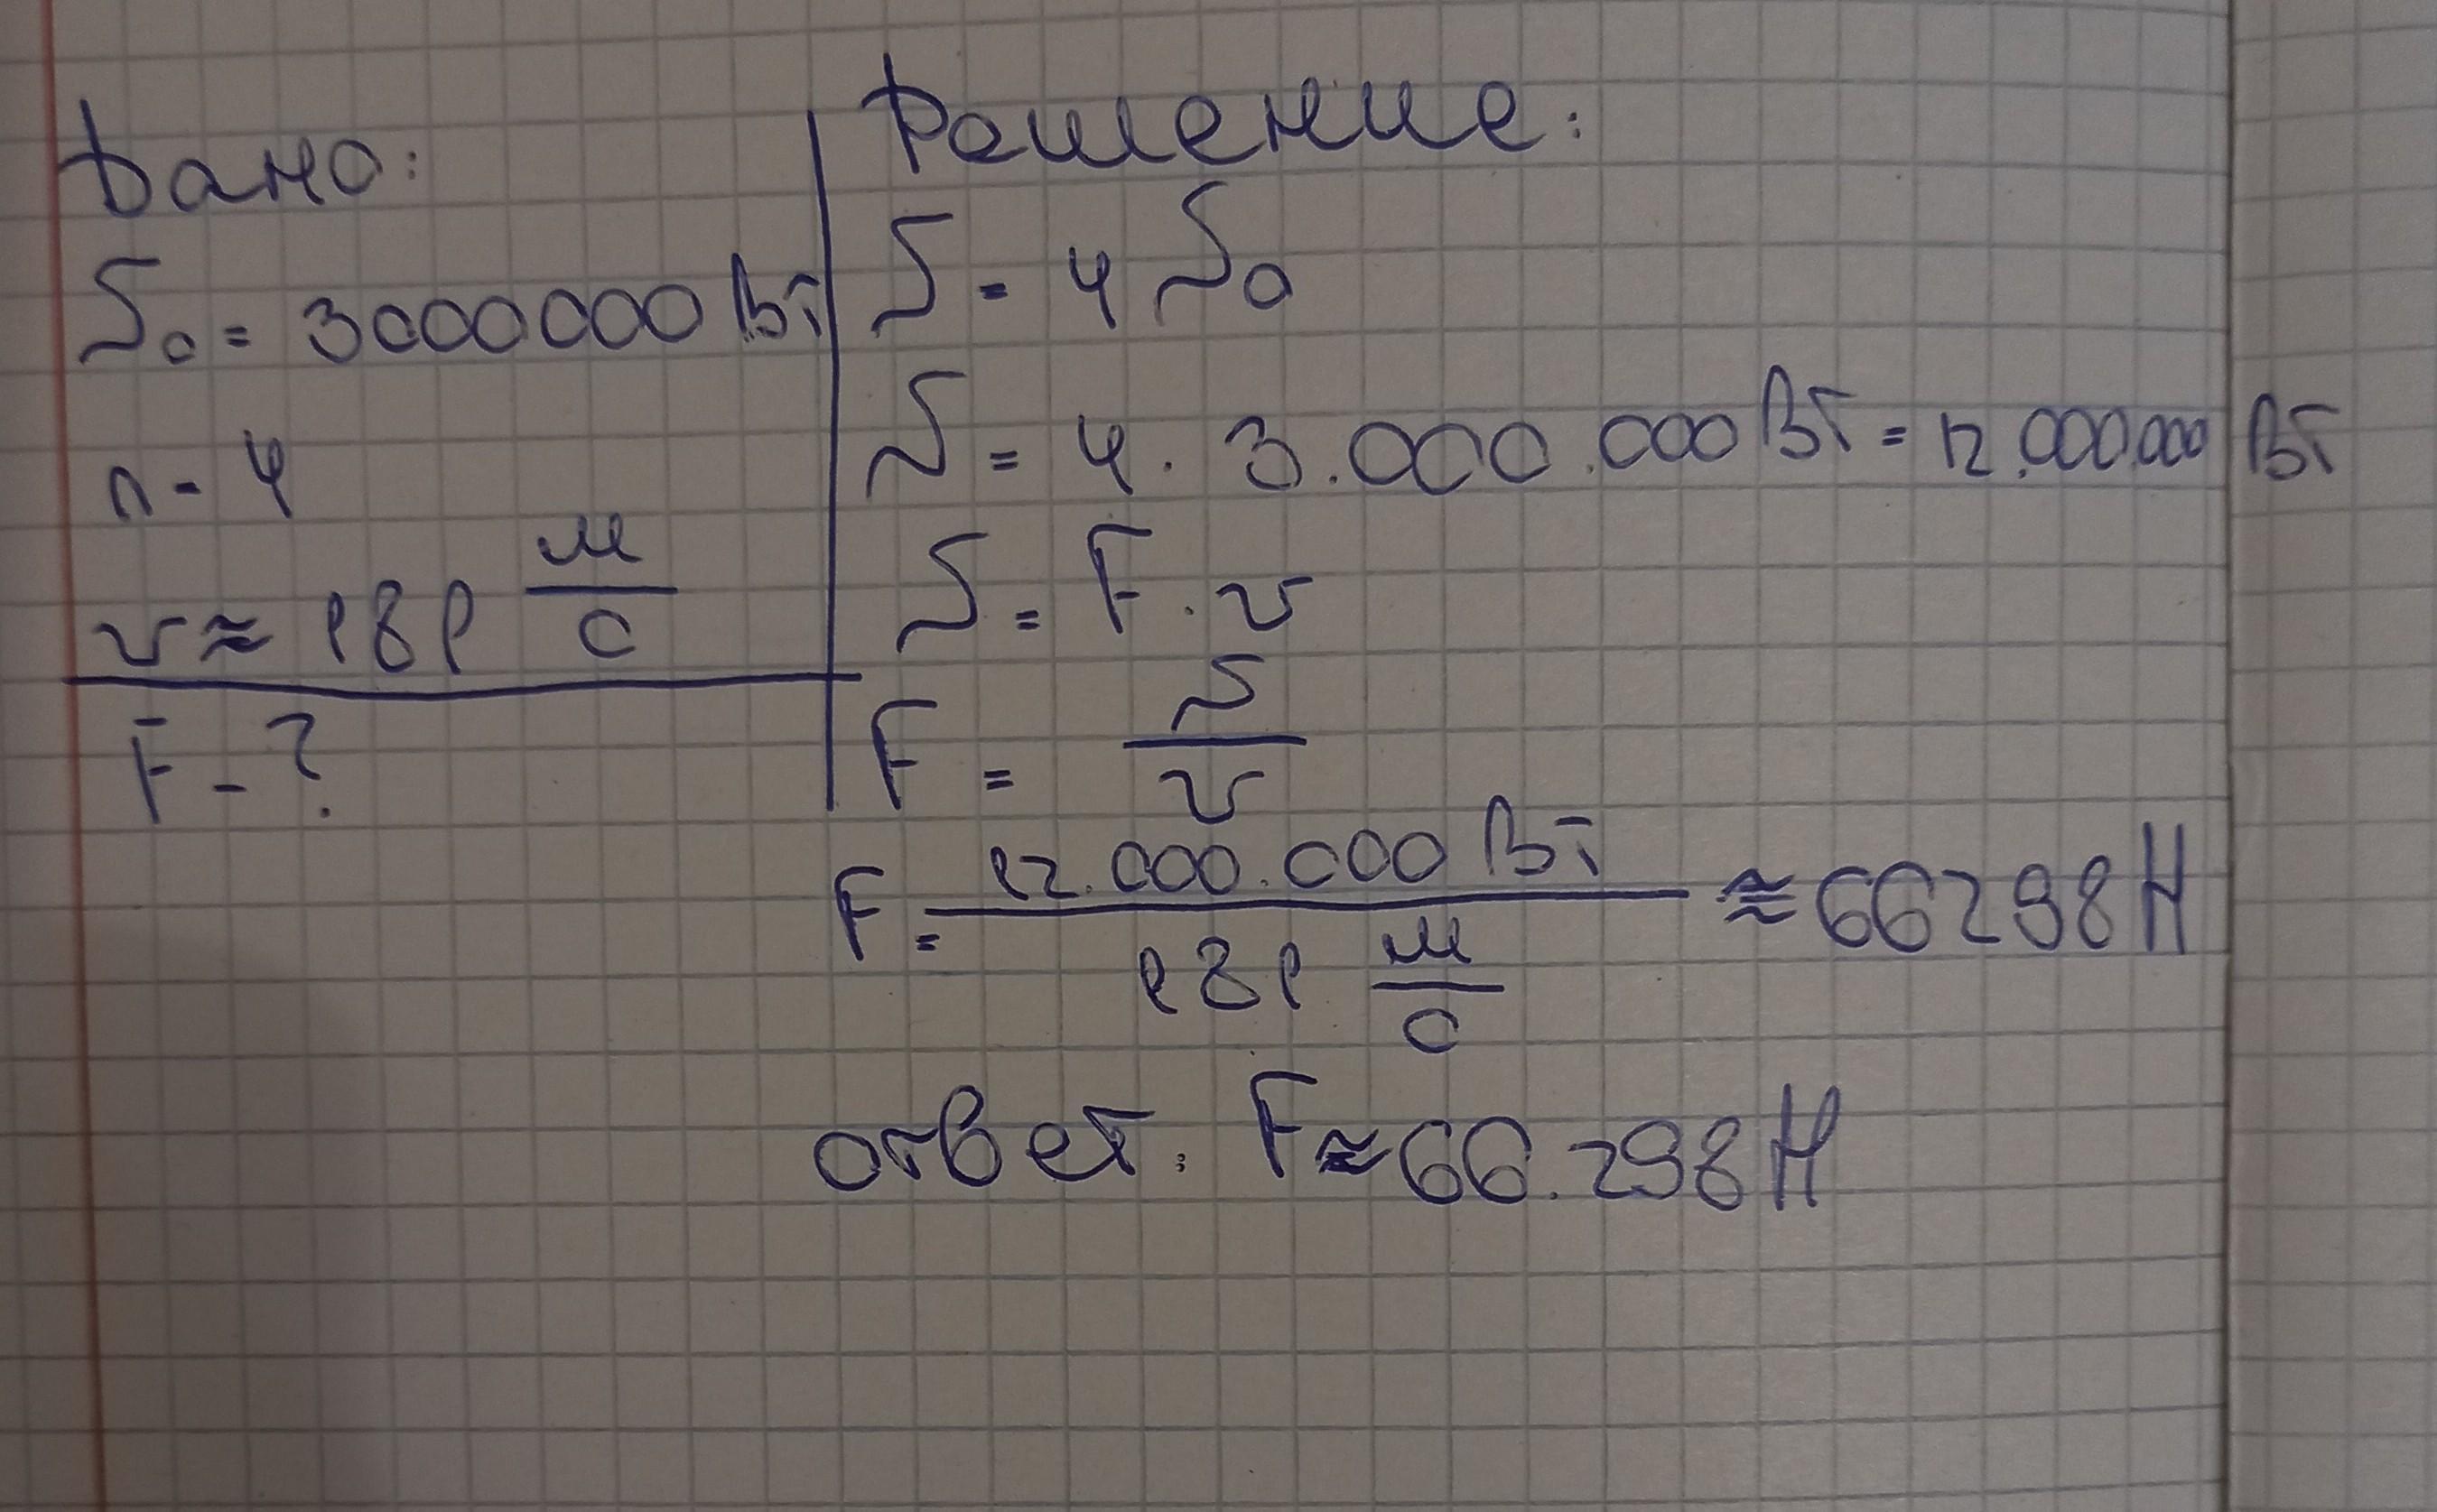 Дано:
N₀ = 3000000 Вт
n - 4
v ≈ 181 м/с
F - ?
Решение:
N = 4 N₀
N = 4 · 3.000.000 Вт = 12.000.000 Вт
N = F · v
F = N/v
F = 12.000.000 Вт / 181 м/с ≈ 66298 Н
ответ: F ≈ 66.298 Н